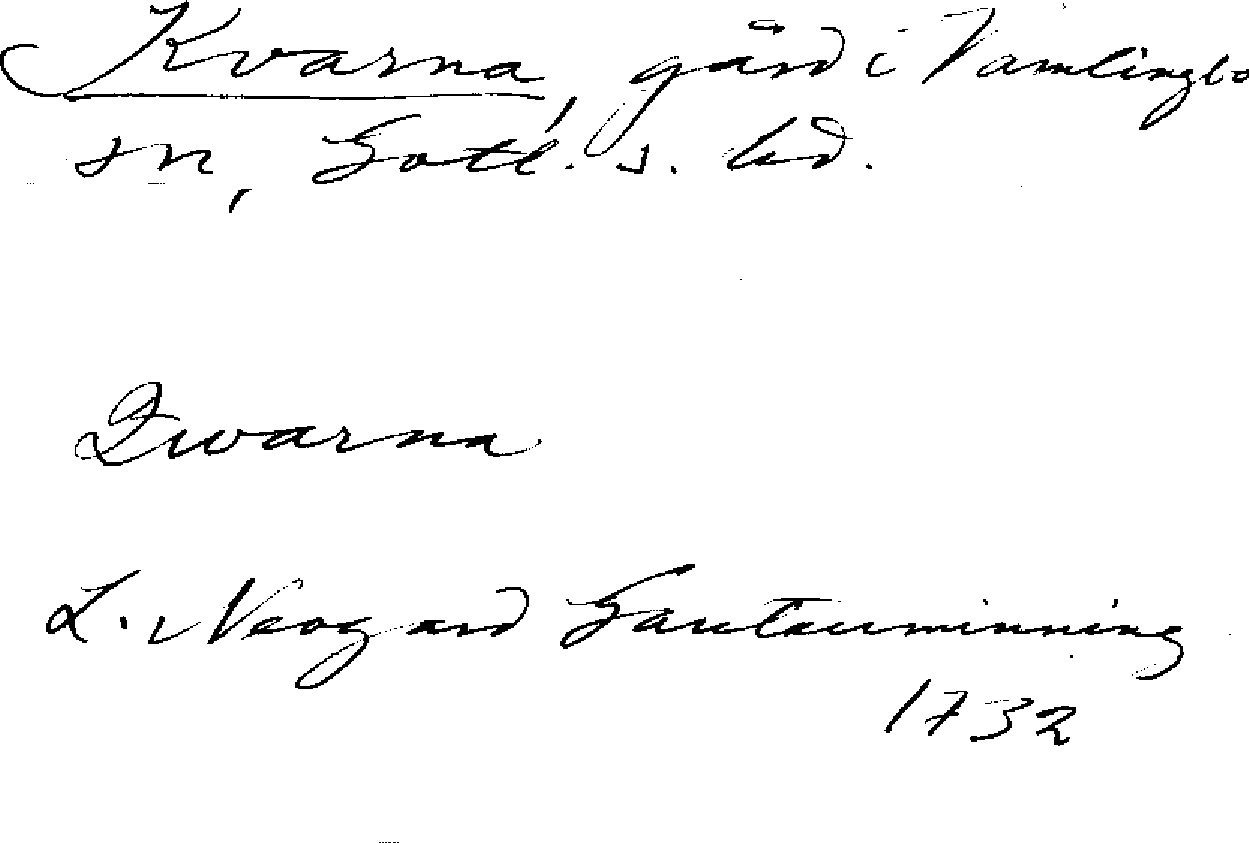 Kvarna, gård i Vamlingbo
sn, Gotl. s. hd.
Qwarna
L. Neogard Gautauminning
1732